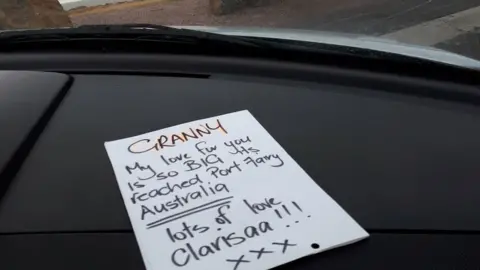 GRANNY
My love for you
is so BIG its
reached Port Fairy
Australia
lots of love
Clarisaa !!!
x x x